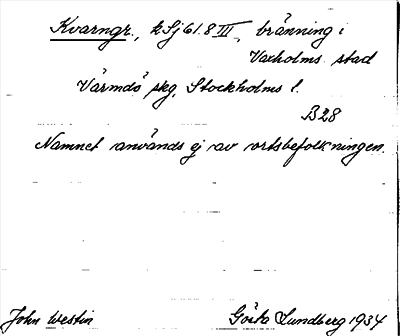 Kvarngr., k Sj 61.8 III, bränning i
Vaxholms stad
Värmdö skg, Stockholms l.
B28
Namnet används ej av ortsbefolkningen.
John Westin Gösta Lundberg 1934